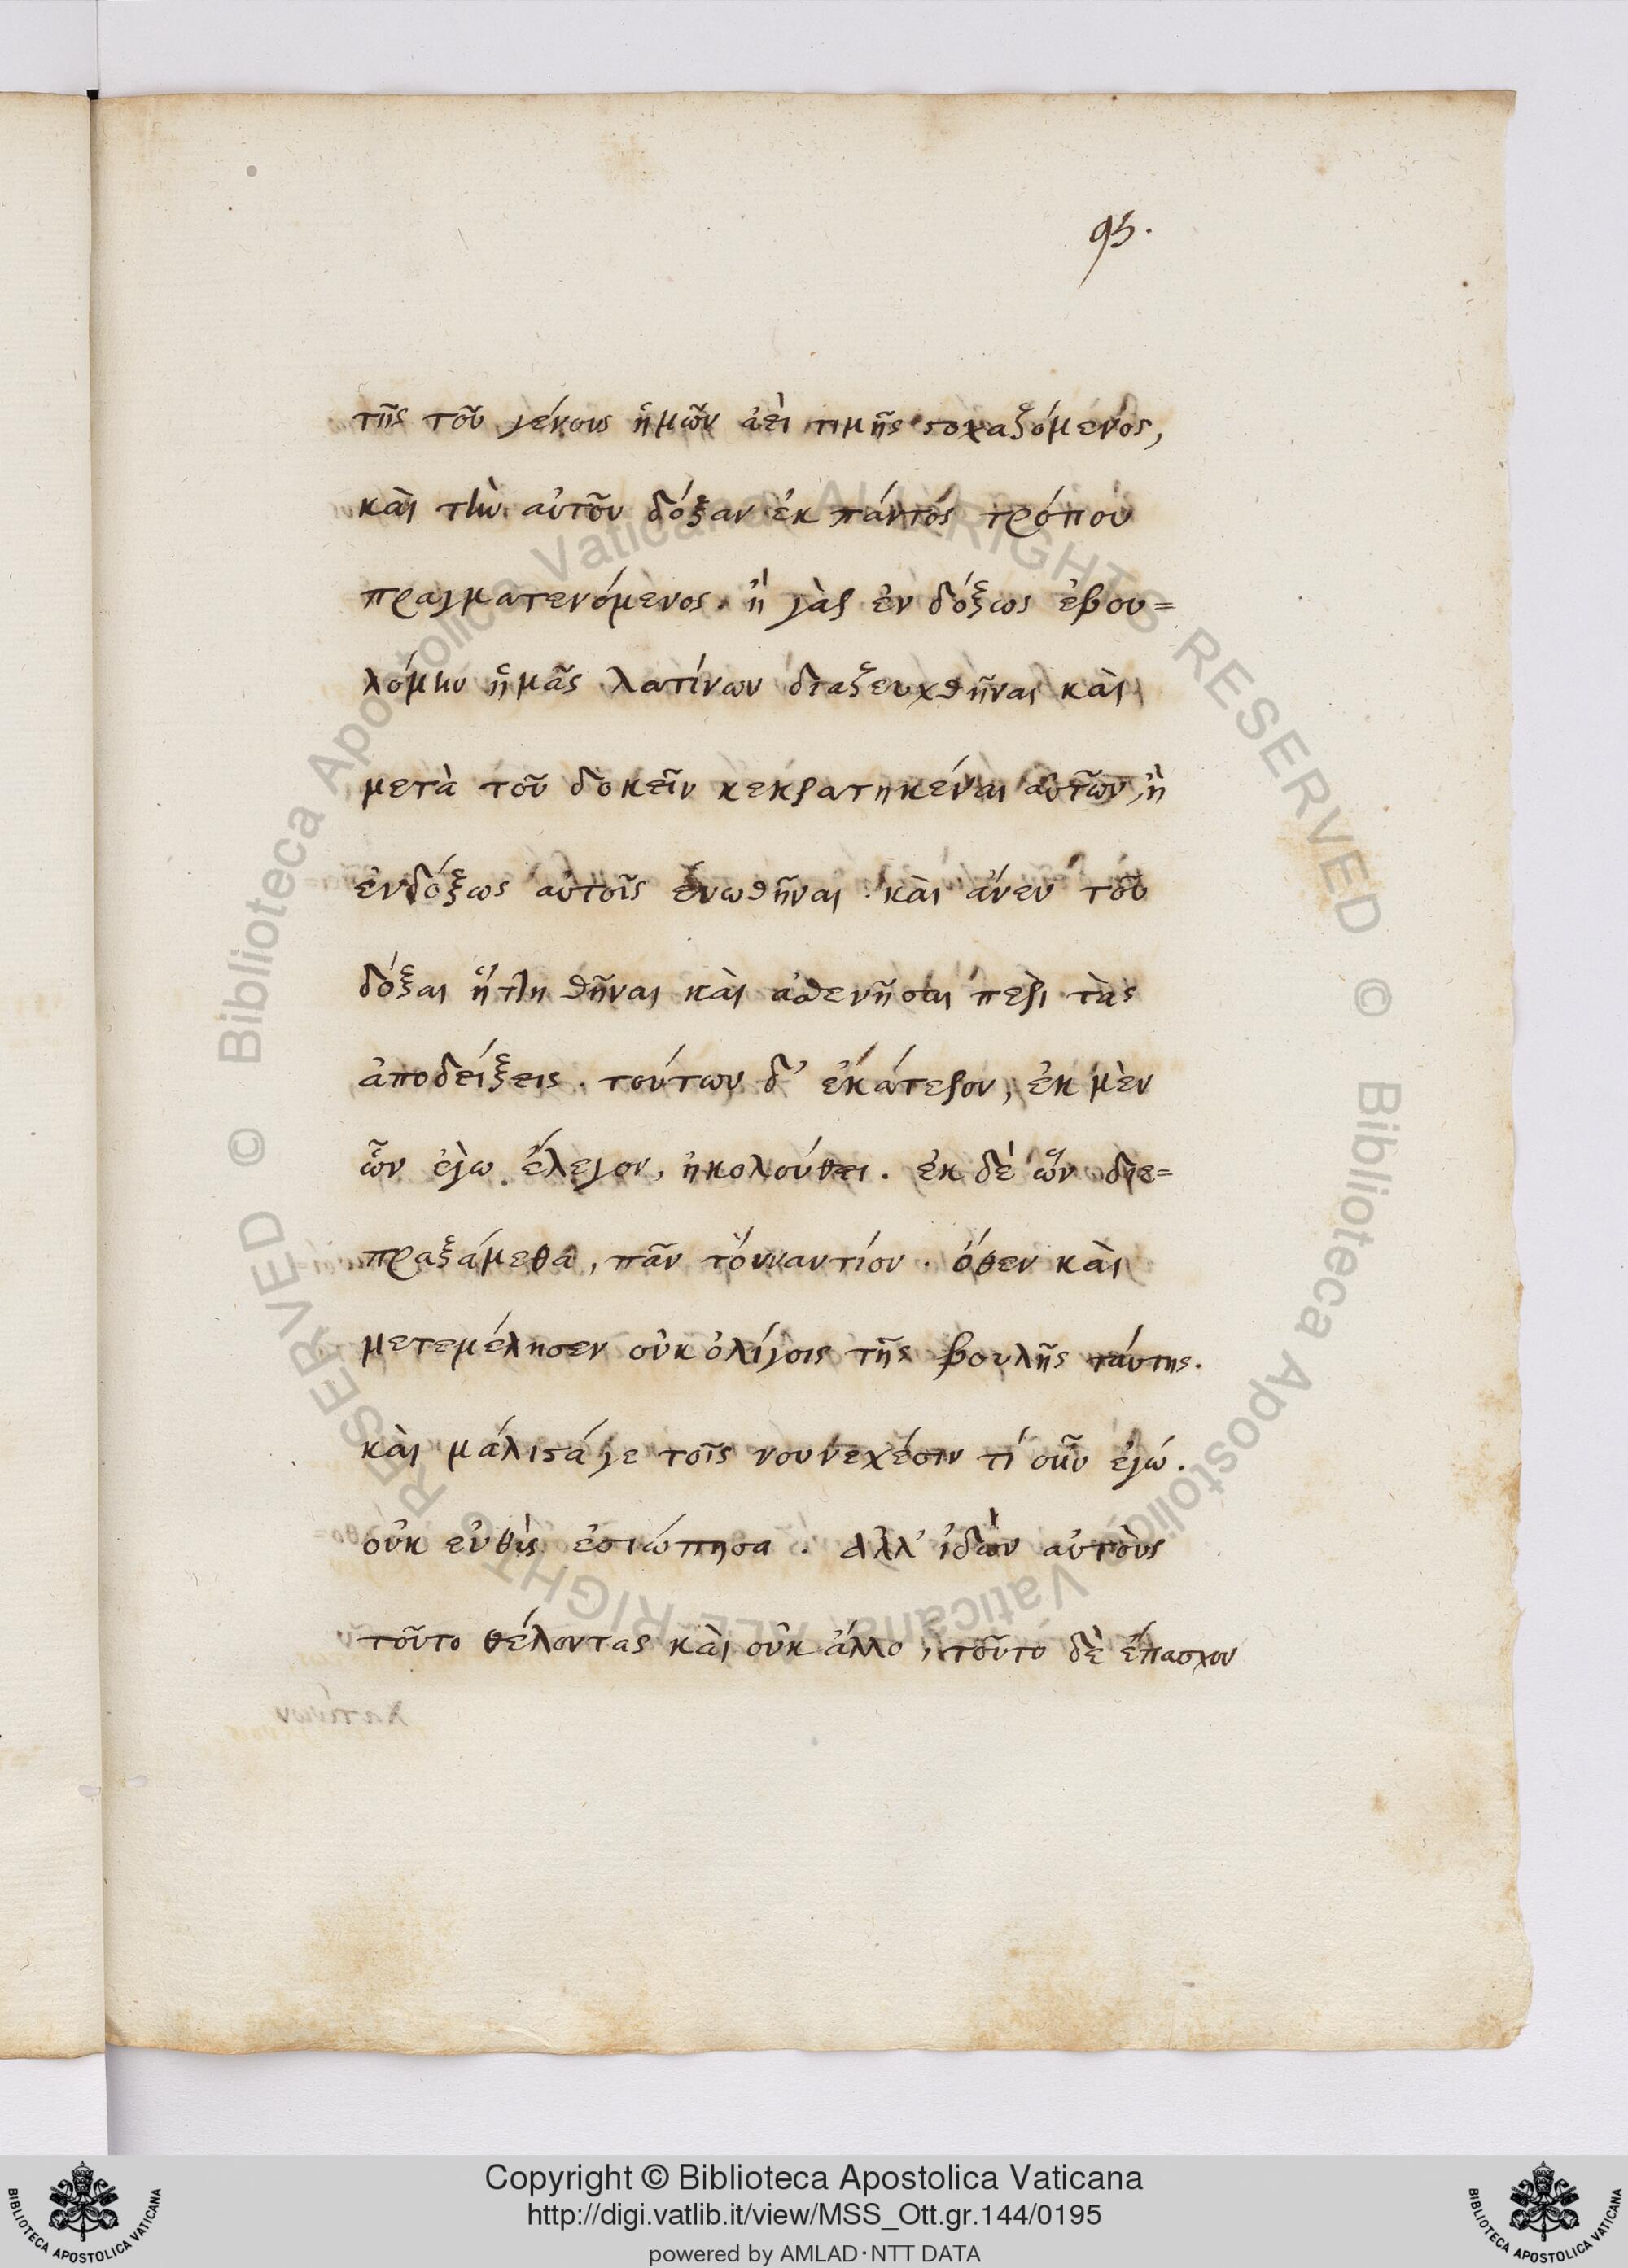 95.
τῆς τοῦ γένους ἡμῶν ἀεὶ τιμῆς στοχαζόμενος,
καὶ τὴν αὐτοῦ δόξαν ἐκ παντός τρόπου
πραγματευόμενος. ἢ γὰρ ἐν δόξως ἐβου=
λόμην ἡμᾶς λατίνων διαζευχθῆναι καὶ
μετὰ τοῦ δοκεῖν κεκρατηκέναι αὐτῶν, ἢ
ἐνδόξως αὐτοῖς ἑνωθῆναι καὶ ἄνευ τοῦ
δόξαι ἡττηθῆναι καὶ ἀσθενῆσαι περὶ τὰς
ἀποδείξεις. τούτων δ' ἑκάτερον, ἐκ μὲν
ὧν ἐγὼ ἔλεγον, ἠκολούθει. ἐκ δὲ ὧν διε=
πραξάμεθα, πᾶν τοὐναντίον. ὅθεν καὶ
μετεμέλησεν οὐκ ὀλίγοις τῆς βουλῆς ταύτης.
καὶ μάλιστά γε τοῖς νουνεχέσιν τί οὖν ἐγώ.
οὐκ εὐθὺς ἐσιώπησα. ἀλλ' ἰδὼν αὐτοὺς
τοῦτο θέλοντας καὶ οὐκ ἄλλο, τοῦτο δὲ ἔπασχον
Biblioteca Apostolica Vaticana ALL RIGHTS RESERVED ©
Biblioteca Apostolica Vaticana ALL RIGHTS RESERVED ©
Copyright © Biblioteca Apostolica Vaticana
http://digi.vatlib.it/view/MSS_Ott.gr.144/0195
powered by AMLAD·NTT DATA
BIBLIOTECA APOSTOLICA VATICANA
BIBLIOTECA APOSTOLICA VATICANA